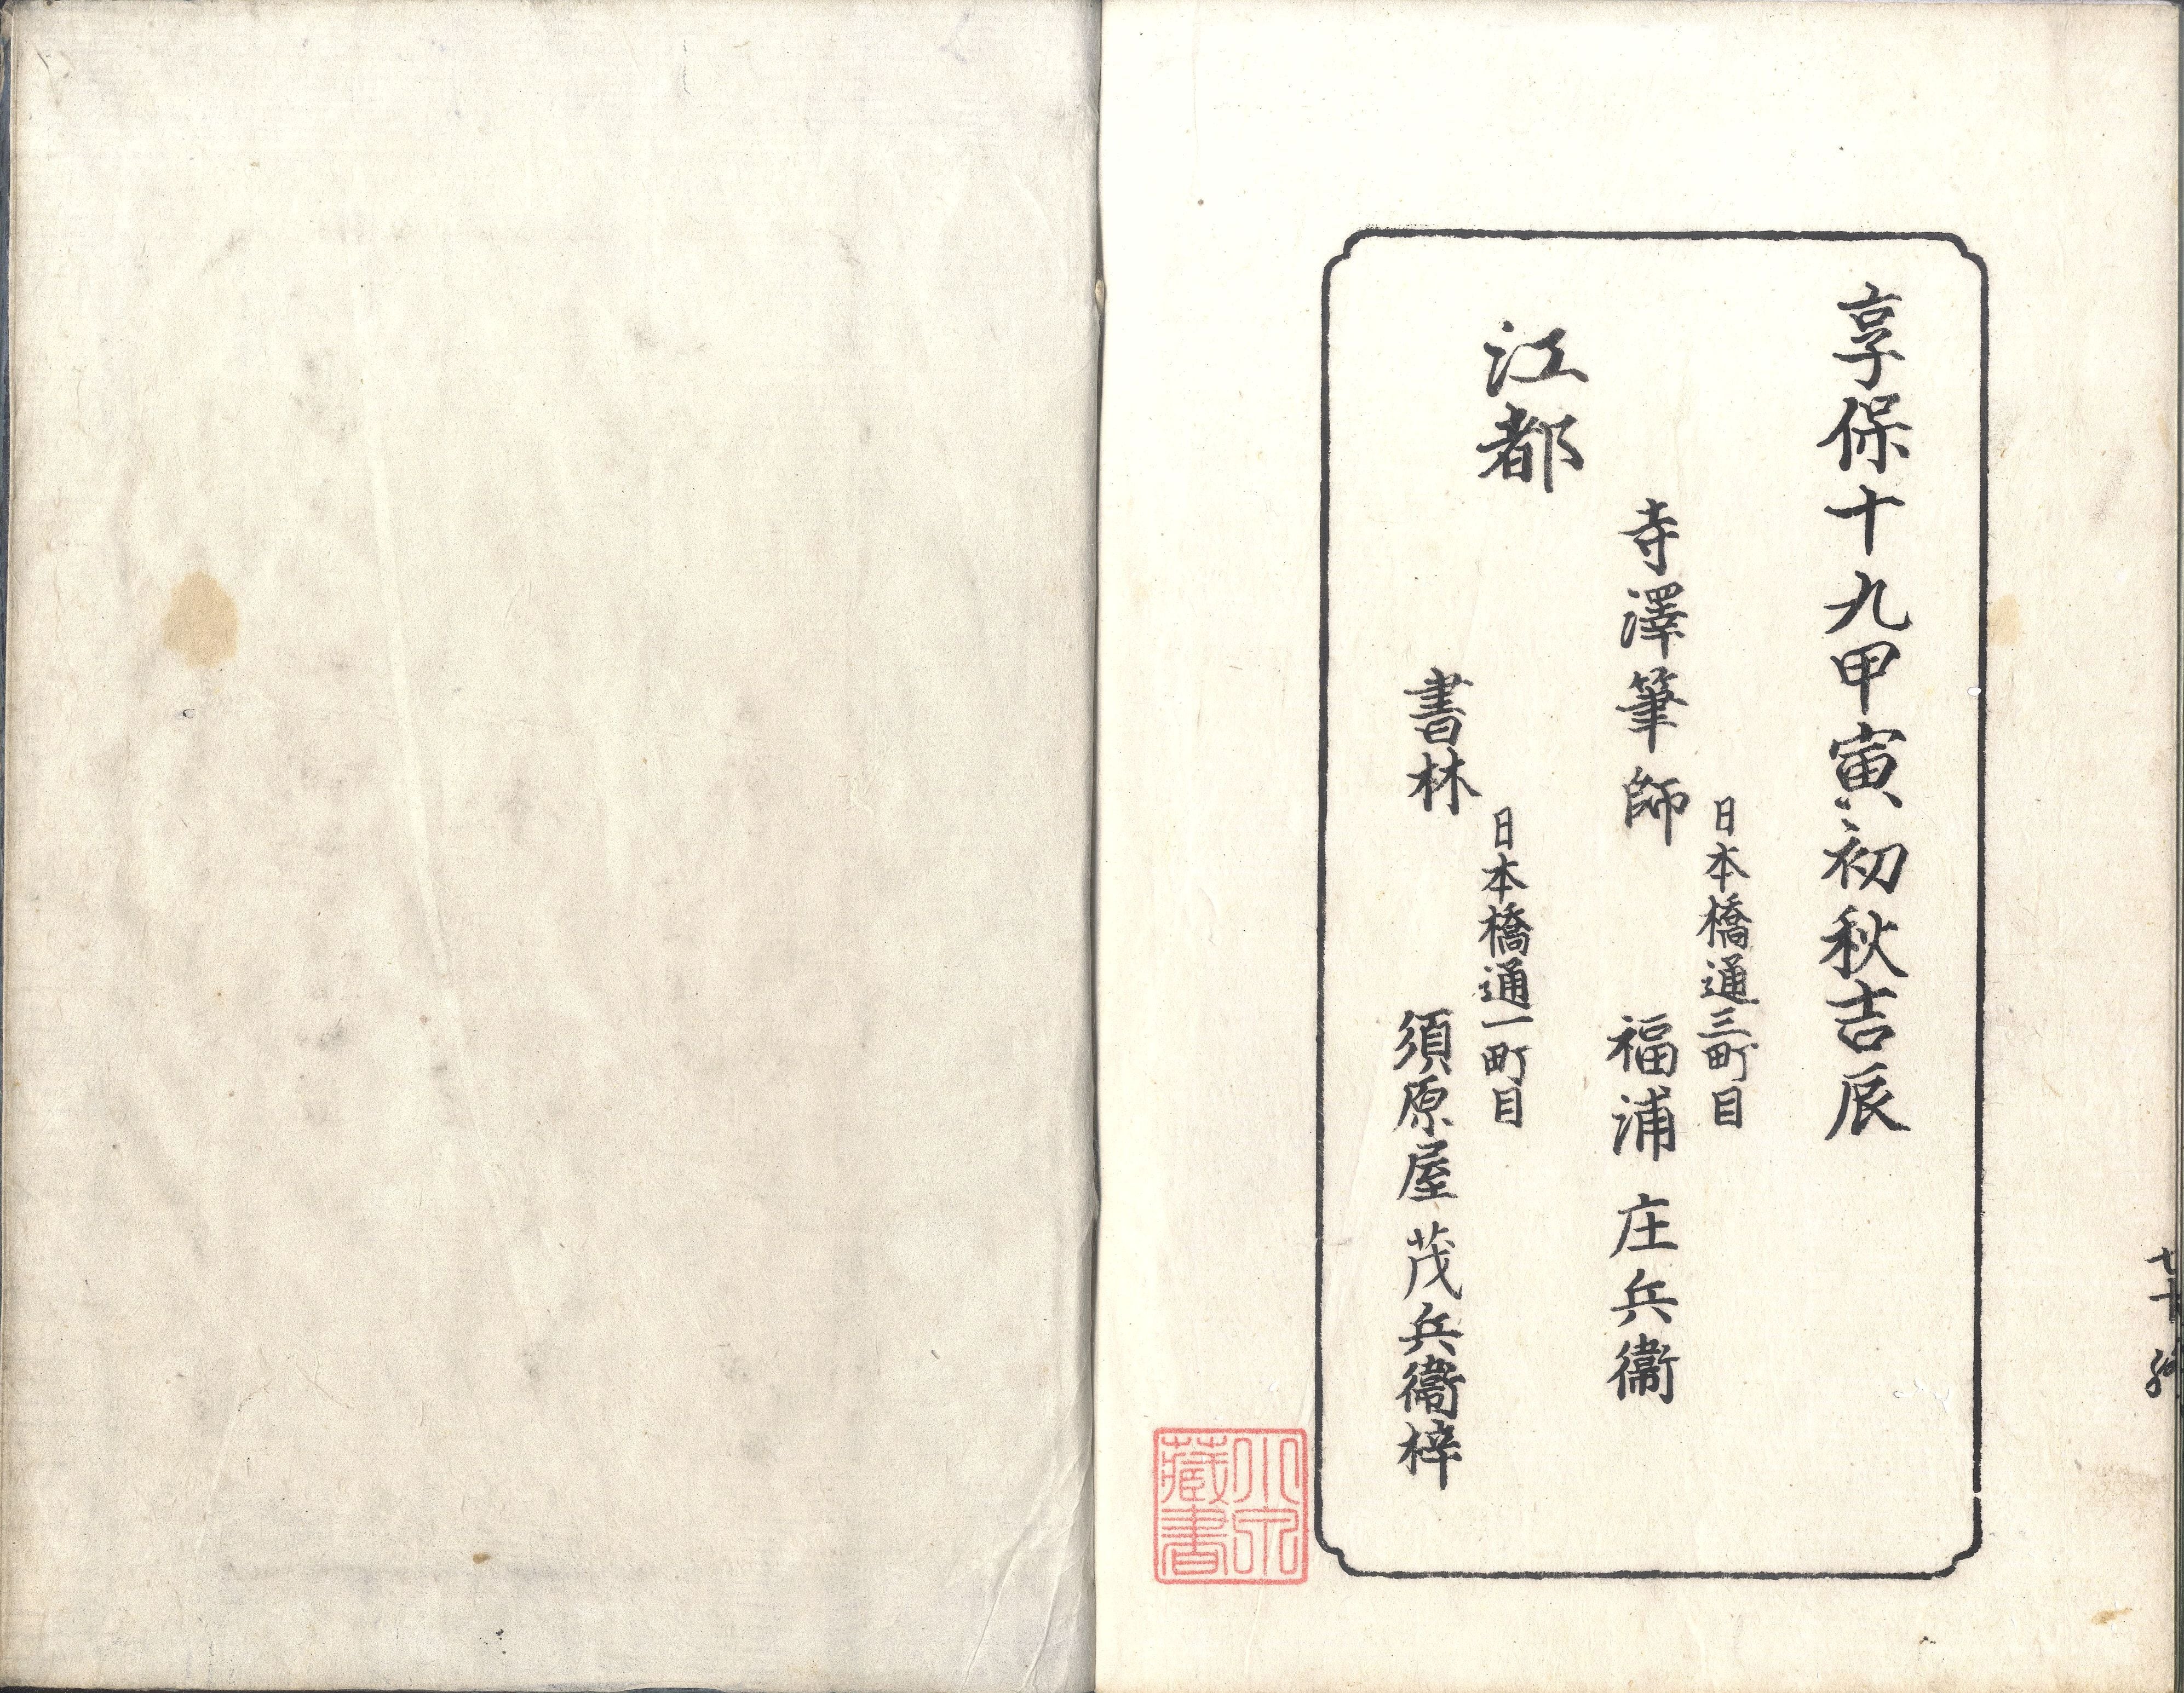 享保十九甲寅初秋吉辰
日本橋通三町目
寺澤筆師 福浦庄兵衞
江都
日本橋通一町目
書林 須原屋茂兵衞梓
藏書